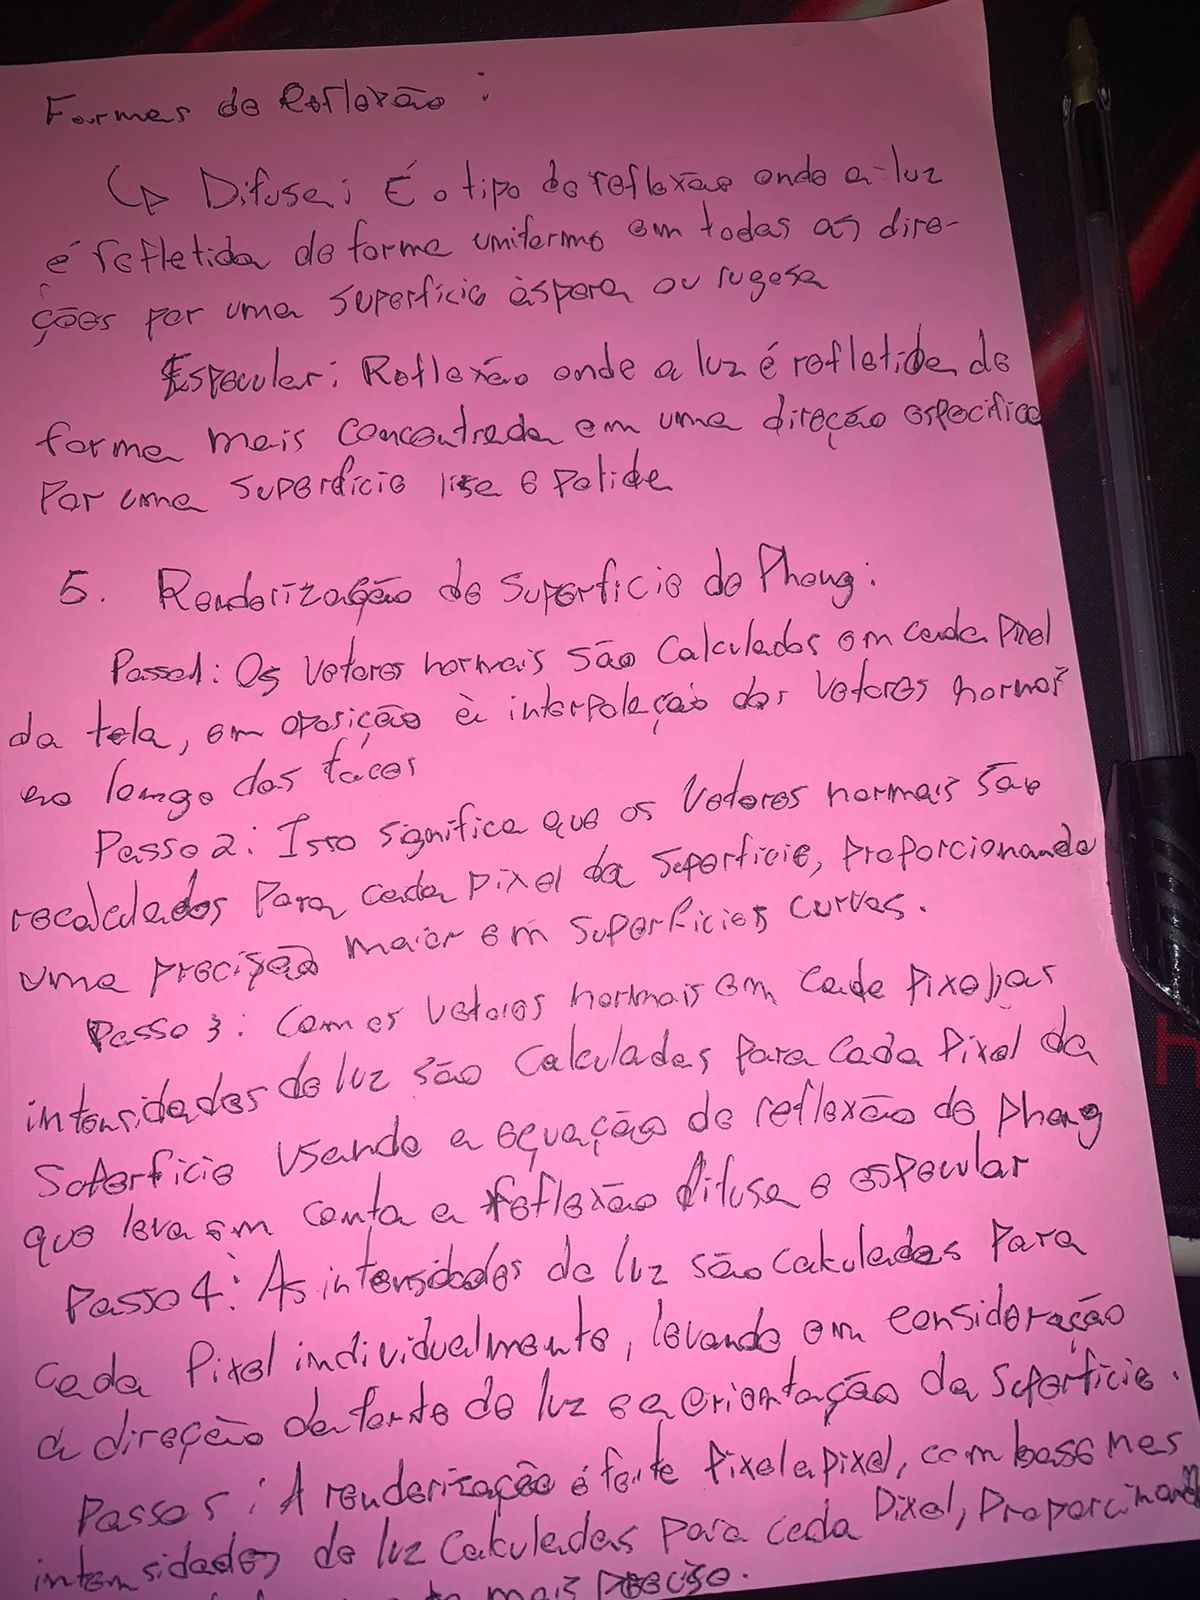 Formas de Reflexão:
↳ Difusa: É o tipo de reflexão onde a luz
é refletida de forma uniforme em todas as dire-
ções por uma superfície àspera ou rugosa
Especular: Reflexão onde a luz é refletida de
forma mais concentrada em uma direção especifica
Por uma superfície lisa e Polida
5. Renderização de Superficie de Phong:
Passo1: Os Vetores normais são Calculados em cada Pixel
da tela, em oposição à interpolação dos Vetores normais
ao longo das faces
Passo 2: Isso significa que os Vetores normais são
recalculados Para cada pixel da Superficie, proporcionando
uma precisão maior em superficies curvas.
Passo 3: Com os Vetores normais em cada Pixel, as
intensidades de luz são Calculadas Para Cada Pixel da
Superficie Usando a equação de reflexão de phong
que leva em conta a reflexão difusa e especular
Passo 4: As intensidades de luz são calculadas Para
cada Pixel individualmente, levando em consideração
a direção da fonte de luz e a orientação da Superficie.
Passo 5: A renderização é feita Pixel a pixel, com base nas
intensidades de luz Calculadas Para cada Pixel, Proporcionando
mais Preciso.